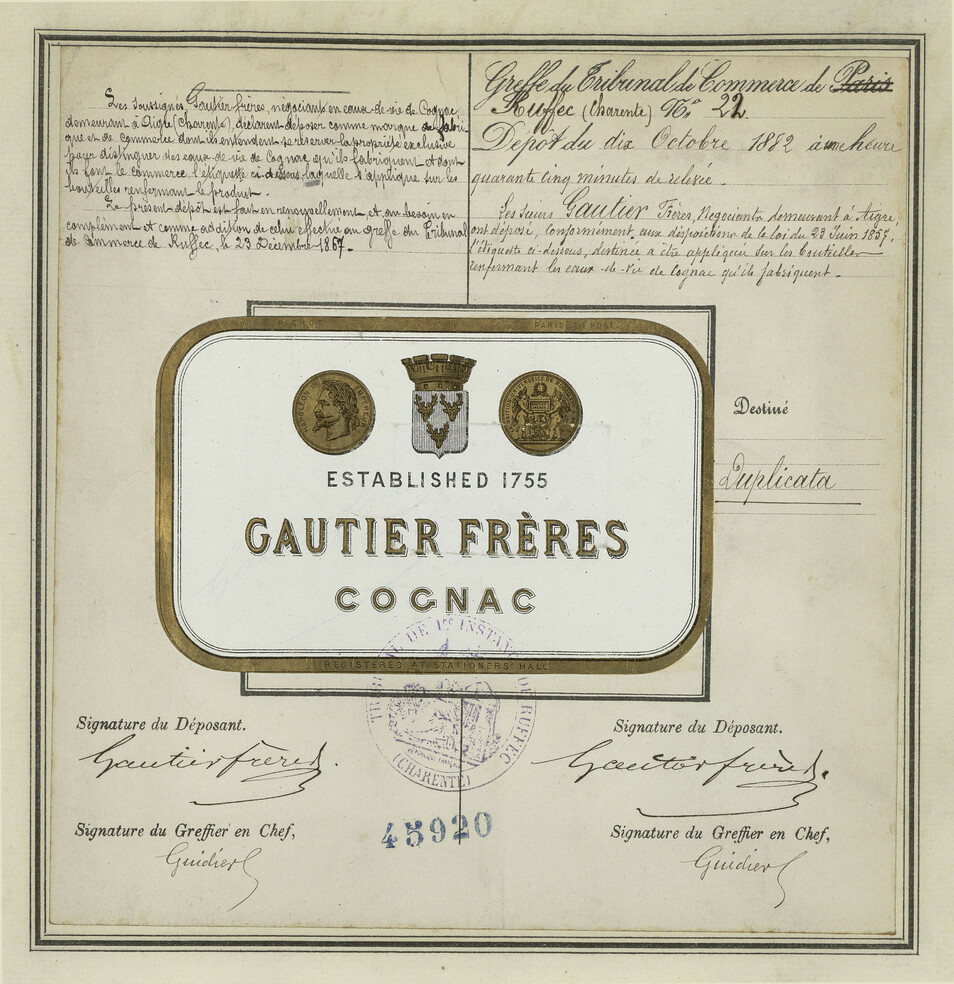 Les soussignés, Gautier frères, négociants en eaux-de-vie de Cognac,
demeurant à Aigre (Charente), déclarent déposer comme marque de fabri-
que et de commerce dont ils entendent se réserver la propriété exclusive
pour distinguer des eaux-de-vie de Cognac qu'ils fabriquent et dont
ils font le commerce, l'étiquette ci-dessous laquelle s'applique sur les
bouteilles renfermant le produit.
Le présent dépôt est fait en renouvellement, et au besoin en
complément et comme addition de celui effectué au greffe du Tribunal
de Commerce de Ruffec, le 23 Décembre 1867.
Greffe du Tribunal de Commerce de Paris
Ruffec (Charente) No. 22
Dépôt du dix Octobre 1882 à une heure
quarante cinq minutes de relevée.
Les sieurs Gautier Frères, Négociants demeurant à Aigre,
ont déposé, conformément aux dispositions de la loi du 23 Juin 1857,
l'étiquette ci-dessous, destinée à être appliquée sur les bouteilles
renfermant les eaux-de-vie de Cognac qu'ils fabriquent.
PICHOT PARIS
ESTABLISHED 1755
GAUTIER FRÈRES
COGNAC
REGISTERED AT STATIONERS' HALL
Destiné
Duplicata
TRIBUNAL DE 1re INSTANCE DE RUFFEC
(CHARENTE)
Signature du Déposant.
Gautier frères.
Signature du Greffier en Chef,
Guidier
45920
Signature du Déposant.
Gautier frères.
Signature du Greffier en Chef,
Guidier